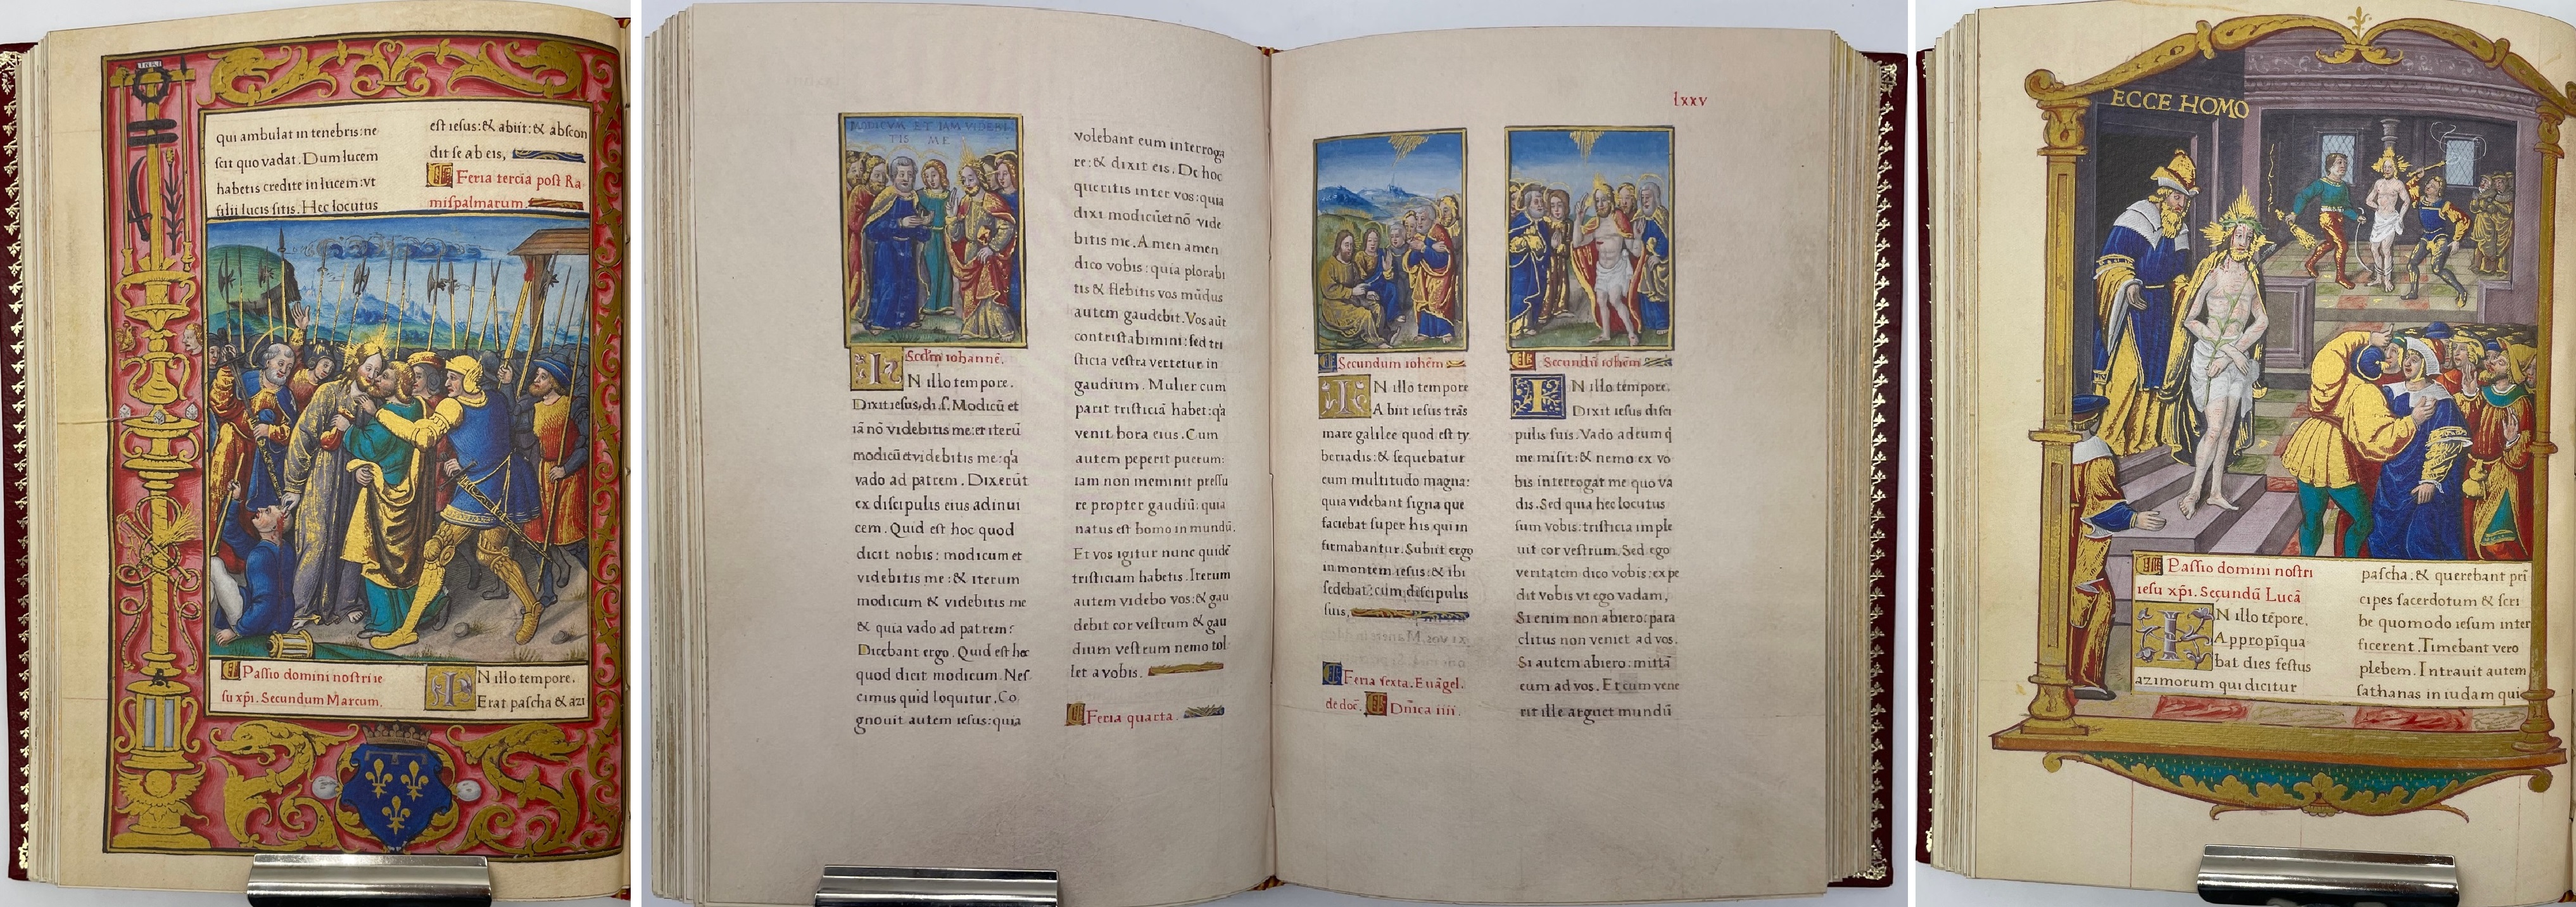 qui ambulat in tenebris: ne
scit quo vadat. Dum lucem
habetis credite in lucem: vt
filii lucis sitis. Hec locutus
est iesus: & abiit: & abscon
dit se ab eis,
Feria tercia post Ra-
mispalmarum.
Passio domini nostri ie
su xp̄i. Secundum Marcum.
IN illo tempore.
Erat pascha & azi
MODICVM ET IAM VIDEBI
TIS ME
Scd̄m iohannē.
IN illo tempore.
Dixit iesus, di. s. Modicū et
iā nō videbitis me: et iterū
modicū et videbitis me: q̄a
vado ad patrem. Dixerūt
ex discipulis eius adinui
cem. Quid est hoc quod
dicit nobis: modicum et
videbitis me: & iterum
modicum & videbitis me
& quia vado ad patrem?
Dicebant ergo. Quid est hoc
quod dicit modicum. Nes
cimus quid loquitur. Co
gnouit autem iesus: quia
volebant eum interroga
re: & dixit eis. De hoc
queritis inter vos: quia
dixi modicū et nō vide
bitis me. Amen amen
dico vobis: quia plorabi
tis & flebitis vos mūdus
autem gaudebit. Vos aūt
contristabimini: sed tri
sticia vestra vertetur in
gaudium. Mulier cum
parit tristiciā habet: q̄a
venit hora eius. Cum
autem peperit puerum:
iam non meminit pressu
re propter gaudiū: quia
natus est homo in mundū.
Et vos igitur nunc quidē
tristiciam habetis. Iterum
autem videbo vos: & gau
debit cor vestrum & gau
dium vestrum nemo tol
let a vobis.
Feria quarta.
lxxv
Secundum iohēm
IN illo tempore
Abiit iesus trās
mare galilee quod est ty
beriadis: & sequebatur
eum multitudo magna:
quia videbant signa que
faciebat super his qui in
firmabantur. Subiit ergo
in montem iesus: & ibi
sedebat: cum discipulis
suis,
Feria sexta. Euāgel.
de doc̄. Dn̄ica iiii.
Secundū iohēm
IN illo tempore.
Dixit iesus disci
pulis suis. Vado ad eum q̄
me misit: & nemo ex vo
bis interrogat me quo va
dis. Sed quia hec locutus
sum vobis: tristicia imple
uit cor vestrum. Sed ego
veritatem dico vobis: expe
dit vobis vt ego vadam,
Si enim non abiero: para
clitus non veniet ad vos.
Si autem abiero: mittā
eum ad vos. Et cum vene
rit ille arguet mundū
ECCE HOMO
Passio domini nostri
iesu xp̄i. Secundū Lucā
IN illo tēpore.
Appropīqua
bat dies festus
azimorum qui dicitur
pascha. & querebant prī
cipes sacerdotum & scri
be quomodo iesum inter
ficerent. Timebant vero
plebem. Intrauit autem
sathanas in iudam qui